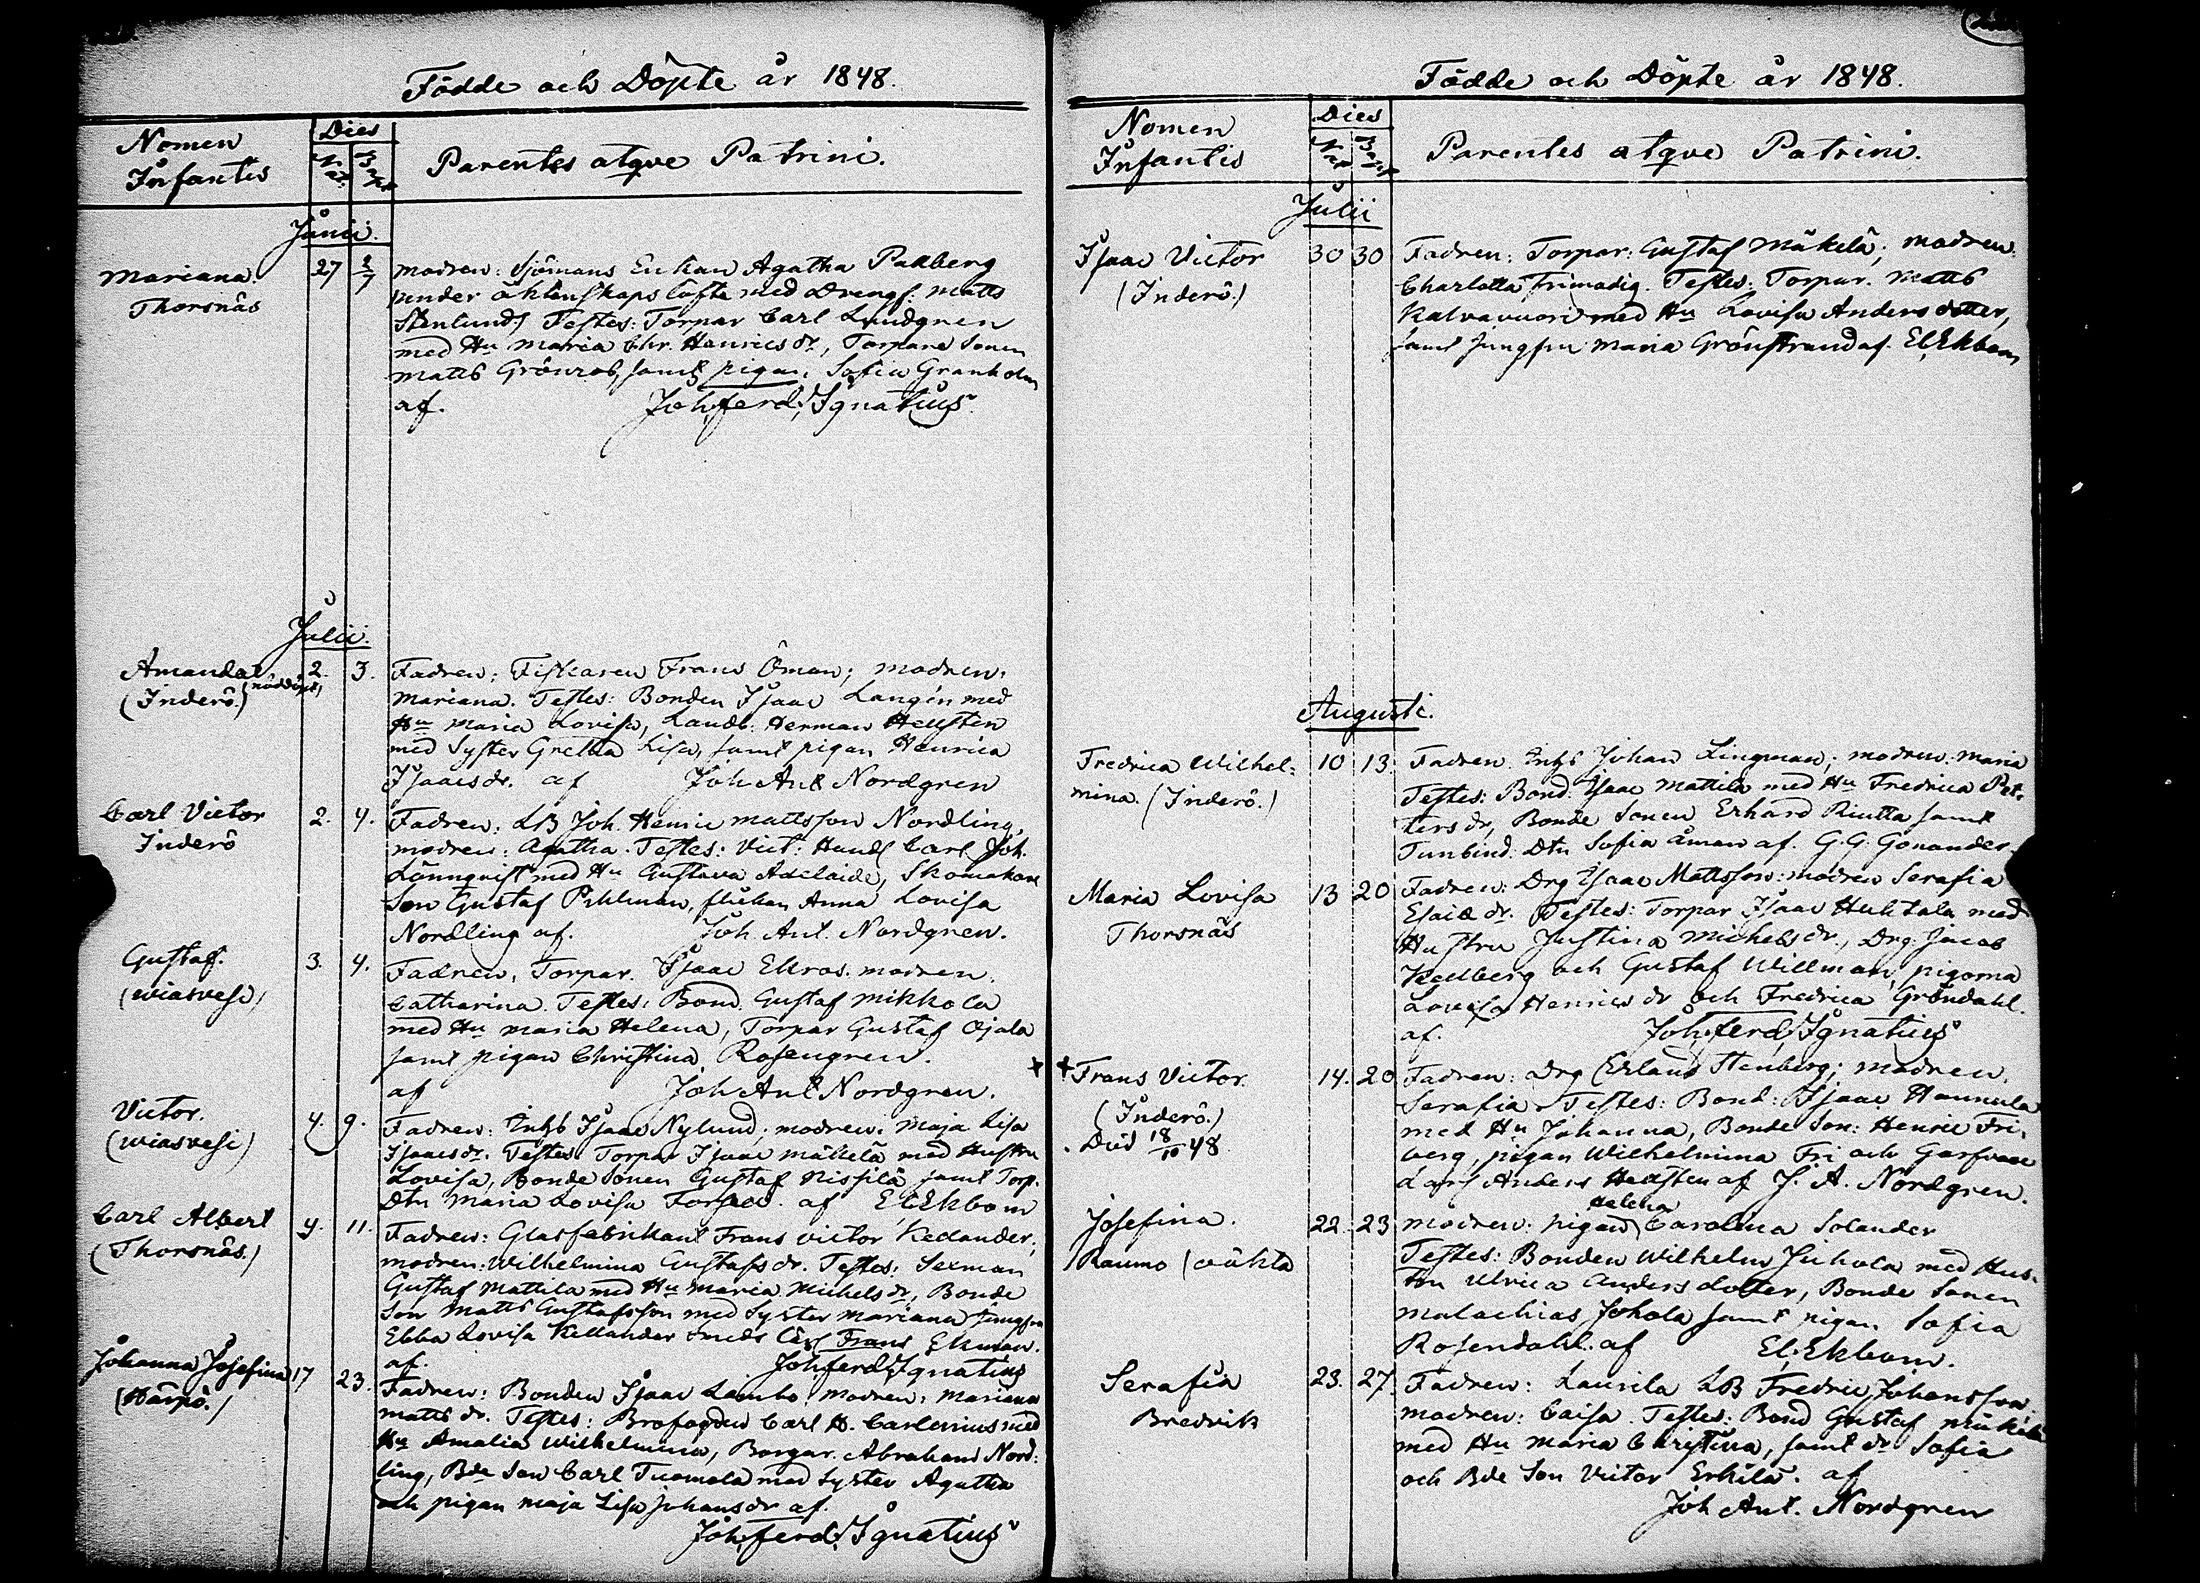 Födde och Döpte år 1848.
Nomen Infantis
Dies
Nat. Bapt.
Parentes atqve Patrini.
Junii.
Mariana. 27 2/7 modren: Sjömans Enkan Agatha Pakberg
Thorsnäs under äktenskaps löfte med Drengs: Matts
Stenlund. Testes: Torpar Carl Lundgren
med Hu Maria Chr. Henricsdr, Torpare Sonen
Matts Grönroos, samt pigan Sofia Granholm
af. Joh. ferd. Ignatius.
Julii.
Amanda 2. 3. Fadren: Fiskaren Frans Öman; modren:
(Inderö.) nöddöpt, Mariana. Testes: Bonden Isaac Langén med
Hu Maria Lovisa, Landb: Herman Hellsten
med Syster Gretha Lisa, samt pigan Henrica
Isaacsdr. af Joh Ant Nordgren
Carl Victor 2. 4. Fadren: LB Joh. Henric Mattsson Nordling,
Inderö modren: Agatha. Testes: Vict: Handl Carl Joh.
Lönnqvist med Hu Gustava Adelaide, Skomakare
Son Gustaf Pihlman, flickan Anna Lovisa
Nordling af. Joh. Ant. Nordgren.
Gustaf. 3. 4. Fadren, Torpar. Isaac Ekros. modren.
(Wiasvesi) Catharina. Testes: Bond. Gustaf Mikkola
med Hu Maria Helena, Torpar Gustaf Ojala
samt pigan Christina Rosengren.
af Joh Ant Nordgren.
Victor. 4. 9. Fadren: Inhs Isaac Nylund; modren: Maja Lisa
(Wiasvesi) Isaacsdr. Testes: Torpar Isaac Mäkelä med Hustru
Lovisa, Bonde Sonen Gustaf Nissilä samt Torp.
Dtn Maria Lovisa af El. Ekbom
Carl Albert 9. 11. Fadren: Glasfabrikant Frans Victor Kellander;
(Thorsnäs.) modren: Wilhelmina Gustafsdr. Testes: Sexman
Gustaf Mattila med Hu Maria Michelsdr, Bonde
Son Matts Gustafsson med Syster Mariana Jungfru
Ebba Lovisa Kellander smeds Frans Ekman.
af. Joh. ferd. Ignatius
Johanna Josefina 17 23. Fadren: Bonden Isaac Lambo. modren: Mariana
(Harpö.) Matts dr. Testes: Brofogden Carl H. Carlenius med
Hu Amalia Wilhelmina, Borgar. Abraham Nord:
ling, Bde Son Carl Tuomola med Syster Agatha
och pigan Maja Lisa Johansdr af.
Joh. ferd. Ignatius
Födde och Döpte år 1848.
Nomen Infantis
Dies
Nat Bapt
Parentes atqve Patrini.
Julii
Isaac Victor 30 30 Fadren: Torpar: Gustaf Mäkelä; modren:
(Inderö.) Charlotta Frimodig. Testes: Torpar. Matts
Kalvavuori med Hu Lovisa Anders dotter,
samt Jungfru Maria Grönstrand af. El. Ekbom
Augusti.
Fredrica Wilhel: 10 13. Fadren. Inhs Johan Lingman; modren: Maria
mina. (Inderö.) Testes: Bond. Isaac Mattila med Hu Fredrica Pet:
ters dr, Bonde Sonen Erhard Riutta samt
Tunbind: Dtn Sofia Åman af. G. G. Gonander
Maria Lovisa 13 20 Fadren: Drg Isaac Mattsson: modren Serafia
Thorsnäs Esaiæ dr. Testes: Torpar Isaac Huhtala med
Hustru Justina Michelsdr., Drg: Jacob
Kedberg och Gustaf Willman, pigorna
Lovisa Henrics dr och Fredrica Gröndahl.
af. Joh. ferd. Ignatius
+ + Frans Victor. 14. 20 Fadren: Drg Erland Stenberg; modren.
(Inderö.) Serafia Testes: Bond: Isaac Hannula
Död 18/10 48. med Hu Johanna, Bonde Son: Henric Fri,
berg, pigan Wilhelmina Fri och Garfvare
Anders Hellsten af J. A. Nordgren.
Josefina. 22. 23 modren: pigan Helena Carolina Solander
Raumo (oäkta Testes: Bonden Wilhelm Juhola med Hus:
tru Ulrica Anders dotter, Bonde Sonen
Malachias Johola samt pigan Sofia
Rosendahl. af El. Ekbom.
Serafia 23. 27. Fadren: Laurila LB Fredric Johansson
Bredvik modren: Caisa. Testes: Bond Gustaf Mäkelä
med Hu Maria Christina, samt dr Sofia
och Bde Son Victor Erkilä. af
Joh Ant. Nordgren